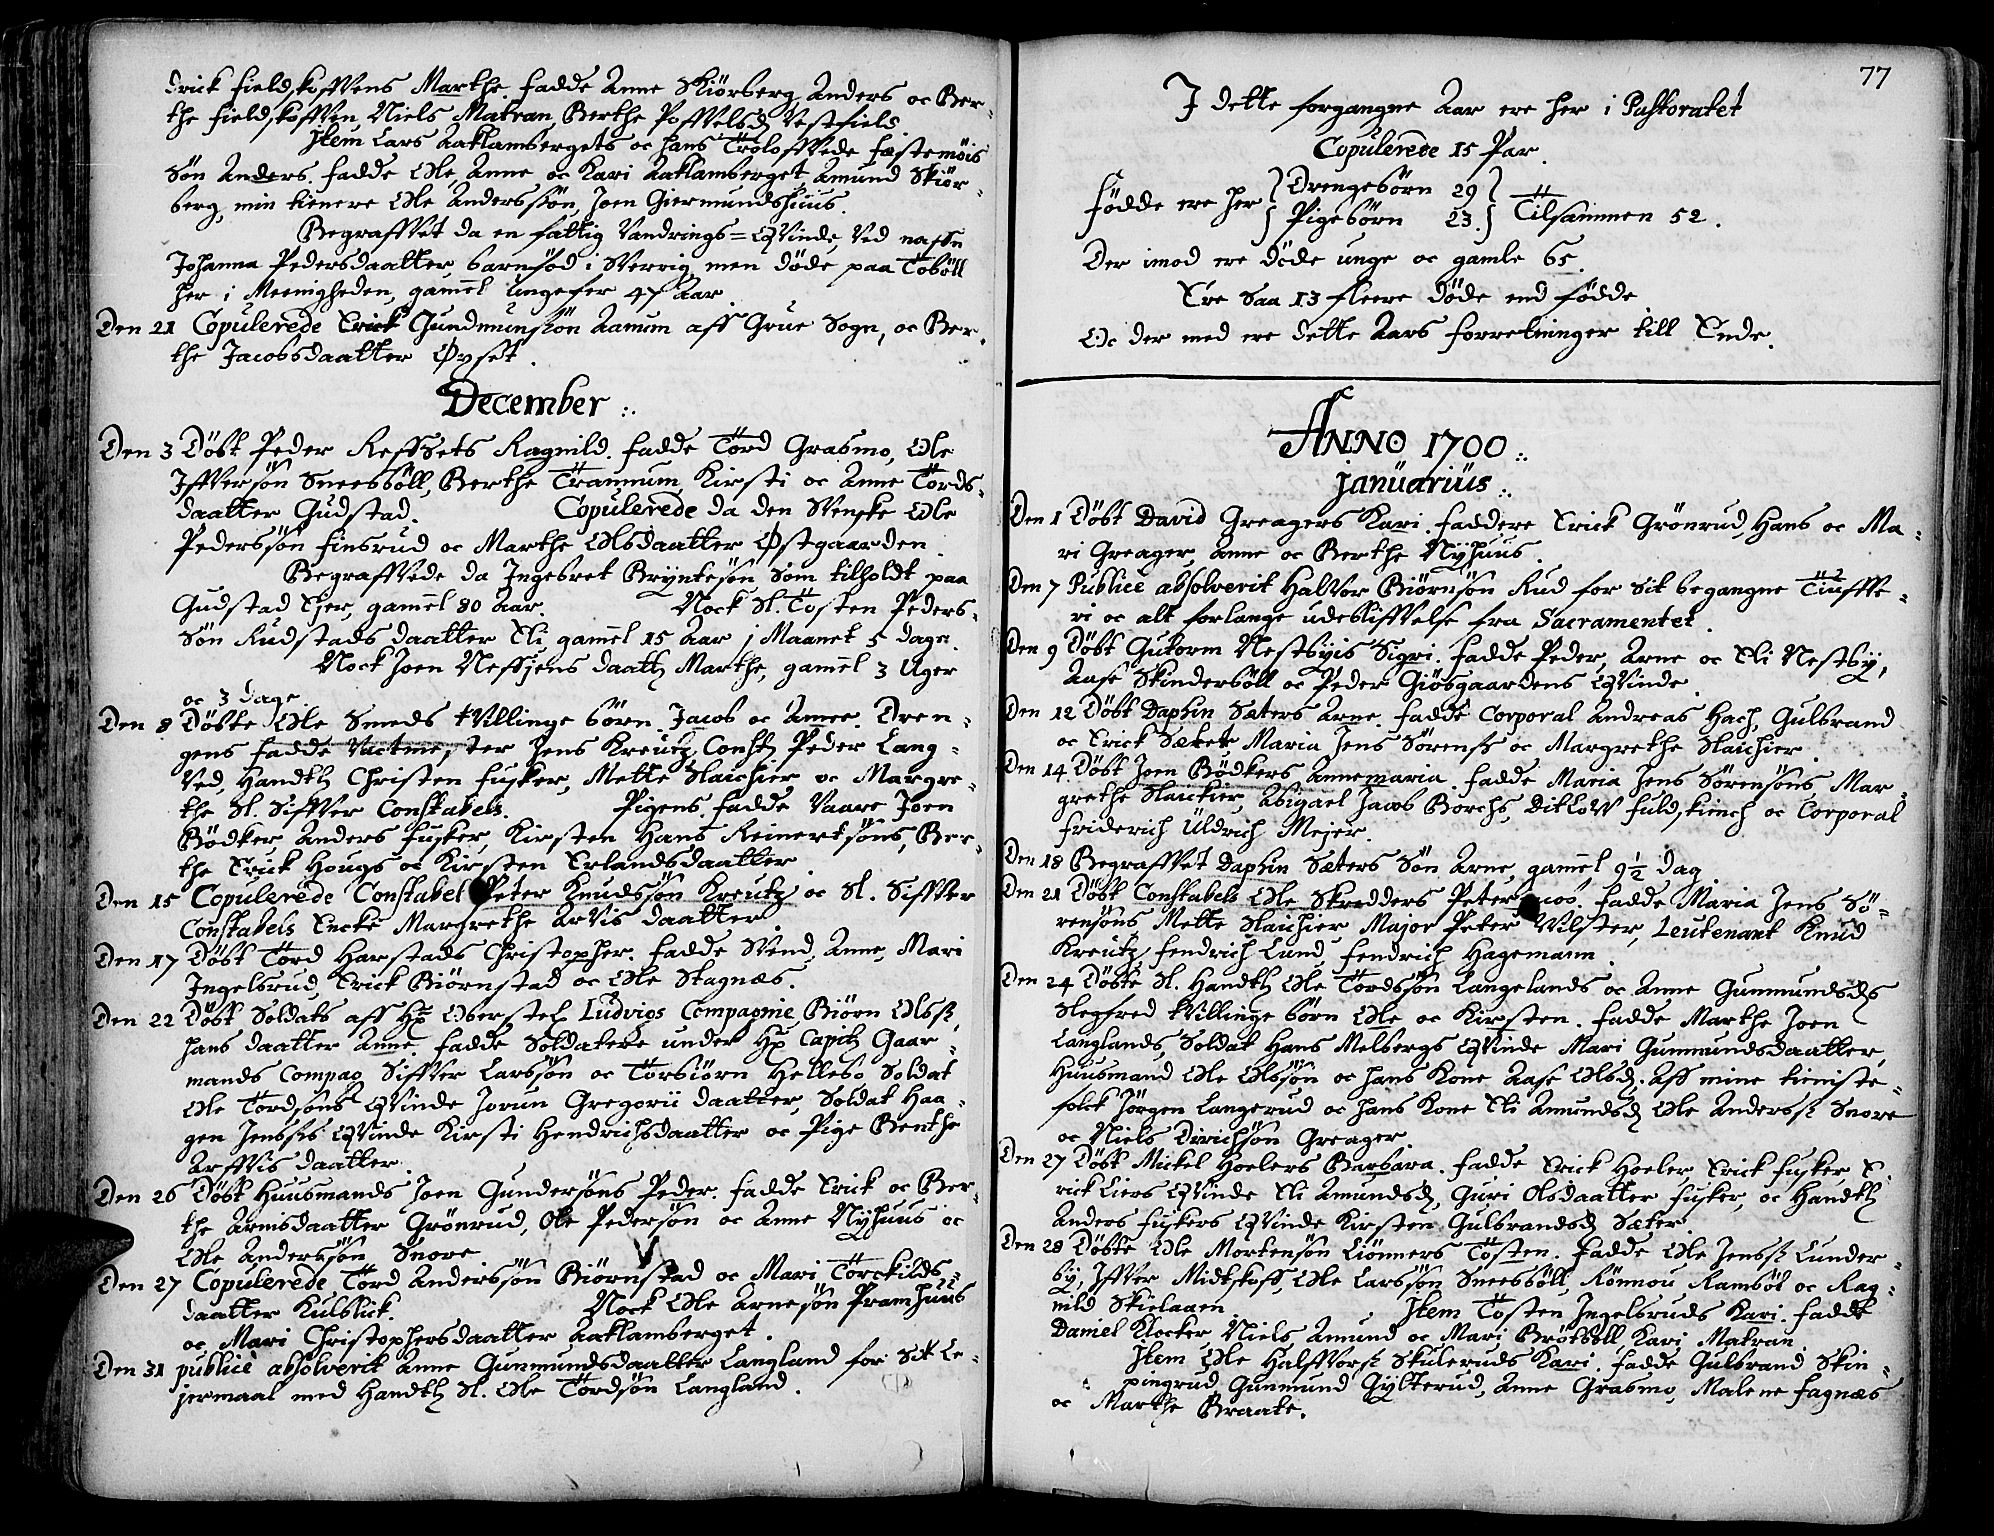 Erick Fieldskoffvens Marthe. fadde Anne Skiörberg, Anders oc Ber-
the Fieldskoffven, Niels Matran, Berthe Poffvelsd. Vestfield.
Item Lars Aaklambergets oc hans Troloffvede festemöis
Sön Anders. fadde Ole, Anne oc Kari Aaklamberget, Amund Skiör-
berg, min tienere Ole Anderssön, Joen Giermundshuus.
Begraffvet da en fattig Vandrings=Qvinde ved nafn
Johanna Pedersdaatter, barnföd i Sverrig, men döde paa Töböll
her i Meenigheden, gamel ungefer 47 Aar.
Den 21 Copulerede Erick Gundmunsön Aamum aff Grue Sogn, oc Ber-
the Jacobsdaatter Øvset.
December
Den 3 Döbt Peder Reffsets Ragnild. fadde Tord Grasmo, Ole
Iffversön Sneesböll, Berthe Trannum, Kirsti oc Anne Tords-
daatter Gudstad. Copulerede da den Svenske Ole
Pederssön Finsrud oc Marthe Olsdaatter Østgaarden.
Begraffvede da Ingebret Bryntesön som tilholdt paa
Gudstad Eier, gamel 80 Aar. Nock Sl. Tosten Peders-
Sön Rudstads daatter Eli gamel 15 Aar 1 Maanet 5 dage.
Nock Joen Neffsjens daatt. Marthe, gamel 3 Uger
oc 3 dage.
Den 8 Döbte Ole Smeds tvillinge börn Jacob oc Annee. Dren-
gens fadde Vactme,ter Jens Kreutz, Const. Peder Lang-
ved, Handtl. Christen Fusker, Mette Slaichier oc Margre-
the Sl. Siffver Constabels. Pigens fadde Vaare Joen
Bödker, Anders Fusker, Kirsten Hans Reinertsöns, Ber-
the Erick Hougs oc Kirsten Erlandsdaatter.
Den 15 Copulerede Constabel Peter Knudssön Kreutz oc Sl. Siffver
Constabels Encke Margrethe Arvis daatter.
Den 17 Döbt Tord Harstads Christopher. fadde Svend, Anne, Mari
Ingelsrud, Erick Biörnstad oc Ole Skagnæs.
Den 22 Döbt Soldats aff Hr. Obersten Ludvigs Compagnie Biörn Olss.
hans daatter Anne. fadde Soldatere under Hr. Capit. Gaar-
mands Compag. Siffver Larssön oc Torbiörn Hellebo Soldat
Ole Tordsöns Qvinde Jorun Gregorii daatter, Soldat Haa-
gen Jenss.s Qvinde Kirsti Hendrichsdaatter oc Pige Benthe
Arffvis daatter.
Den 26 Döbt Huusmands Joen Gundersöns Peder. fadde Erick oc Ber-
the Arnisdaatter Grönrud, Ole Pedersön oc Anne Nyhuus oc
Ole Anderssön Snore.
Den 27 Copulerede Tord Anderssön Biörnstad oc Mari Törckilds-
daatter Kulblick. Nock Ole Arnesön Pramhuus
oc Mari Christophersdaatter Aaklamberget.
Den 31 publice absolverit Anne Gunmundsdaatter Langland for Sit Le-
jermaal med Handtl. Sl. Ole Tordsön Langland.
77
I dette forgangne Aar ere her i Pastoratet
Copulerede 15 Par.
Födde ere her } Drengebörn 29 } Tilsammen 52.
Pigebörn 23.
Der imod ere döde unge oc gamle 65.
Ere Saa 13 fleere döde end födde
Oc der med ere dette Aars forretninger till Ende.
ANNO 1700
Januarius
Den 1 Döbt David Greagers Kari. faddere Erick Grönrud, Hans oc Ma-
ri Greager, Anne oc Berthe Nyhuus.
Den 7 Publice absolverit Halvor Biörnsön Rud for Sit begangne Tiuffve-
ri oc alt forlange udebliffvelse fra Sacramentet.
Den 9 Döbt Gutorm Nestbyis Sigri. fadde Peder, Arne oc Eli Nestby,
Aase Skinderböll oc Peder Giösgaardens Qvinde.
Den 12 Döbt Daphin Sæters Arne. fadde Corporal Andreas Hach, Gulbrand
oc Erick Sæter, Maria Jens Sörens. oc Margrethe Slaichier.
Den 14 Döbt Joen Bödkers Annemaria. fadde Maria Jens Sörensöns, Mar-
grethe Slaichier, Abigael Jacob Borchs, Ditlow Fuldskinch oc Corporal
Friderich Uldrich Mejer.
Den 18 Begraffvet Daphin Sæters Sön Arne, gamel 9½ dag.
Den 21 Döbt Constabels Ole Skredders Peter. fadde Maria Jens Sö-
rensöns, Mette Slaichier, Major Peter Wilster, Leutenant Knud
Kreutz, Fendrich Lund, Fendrich Hagemann.
Den 24 Döbte Sl. Handtl. Ole Tordssön Langelands oc Anne Gunmundsds
Slegfred tvillinge börn Ole oc Kirsten. fadde Marthe Joen
Langlands, Soldat Hans Melbergs Qvinde Mari Gunmundsdaatter,
Huusmand Ole Olssön oc hans Kone Aase Olsd. Aff mine tieniste-
folck Jörgen Langerud oc hans Kone Eli Amundsd. Ole Anderss. Snore
oc Niels Dirichsön Greager.
Den 27 Döbt Mickel Hoelers Barbara. fadde Erick Hoeler, Erick Fusker, E-
rick Liers Qvinde Eli Amundsd., Guri Olsdaatter Fusker, oc Handtl.
Anders Fuskers Qvinde Kirsten Gulbrandsd. Sæter.
Den 28 Döbte Ole Mortensön Liönners Tosten. fadde Ole Jenss. Lunder-
by, Iffver Midtskoff, Ole Larssön Sneesböll, Rönnou Ramsöt oc Rag-
nild Skielaaen. Item Tosten Ingelsruds Kari. fadde
Daniel Klocker, Niels, Amund oc Mari Brötböll, Kari Matran.
Item Ole Halffvors. Skuleruds Kari. fadde Gulbrand Skin-
pingrud, Gunmund Gylterud, Anne Grasmo, Malene Fagnæs
oc Marthe Braate.